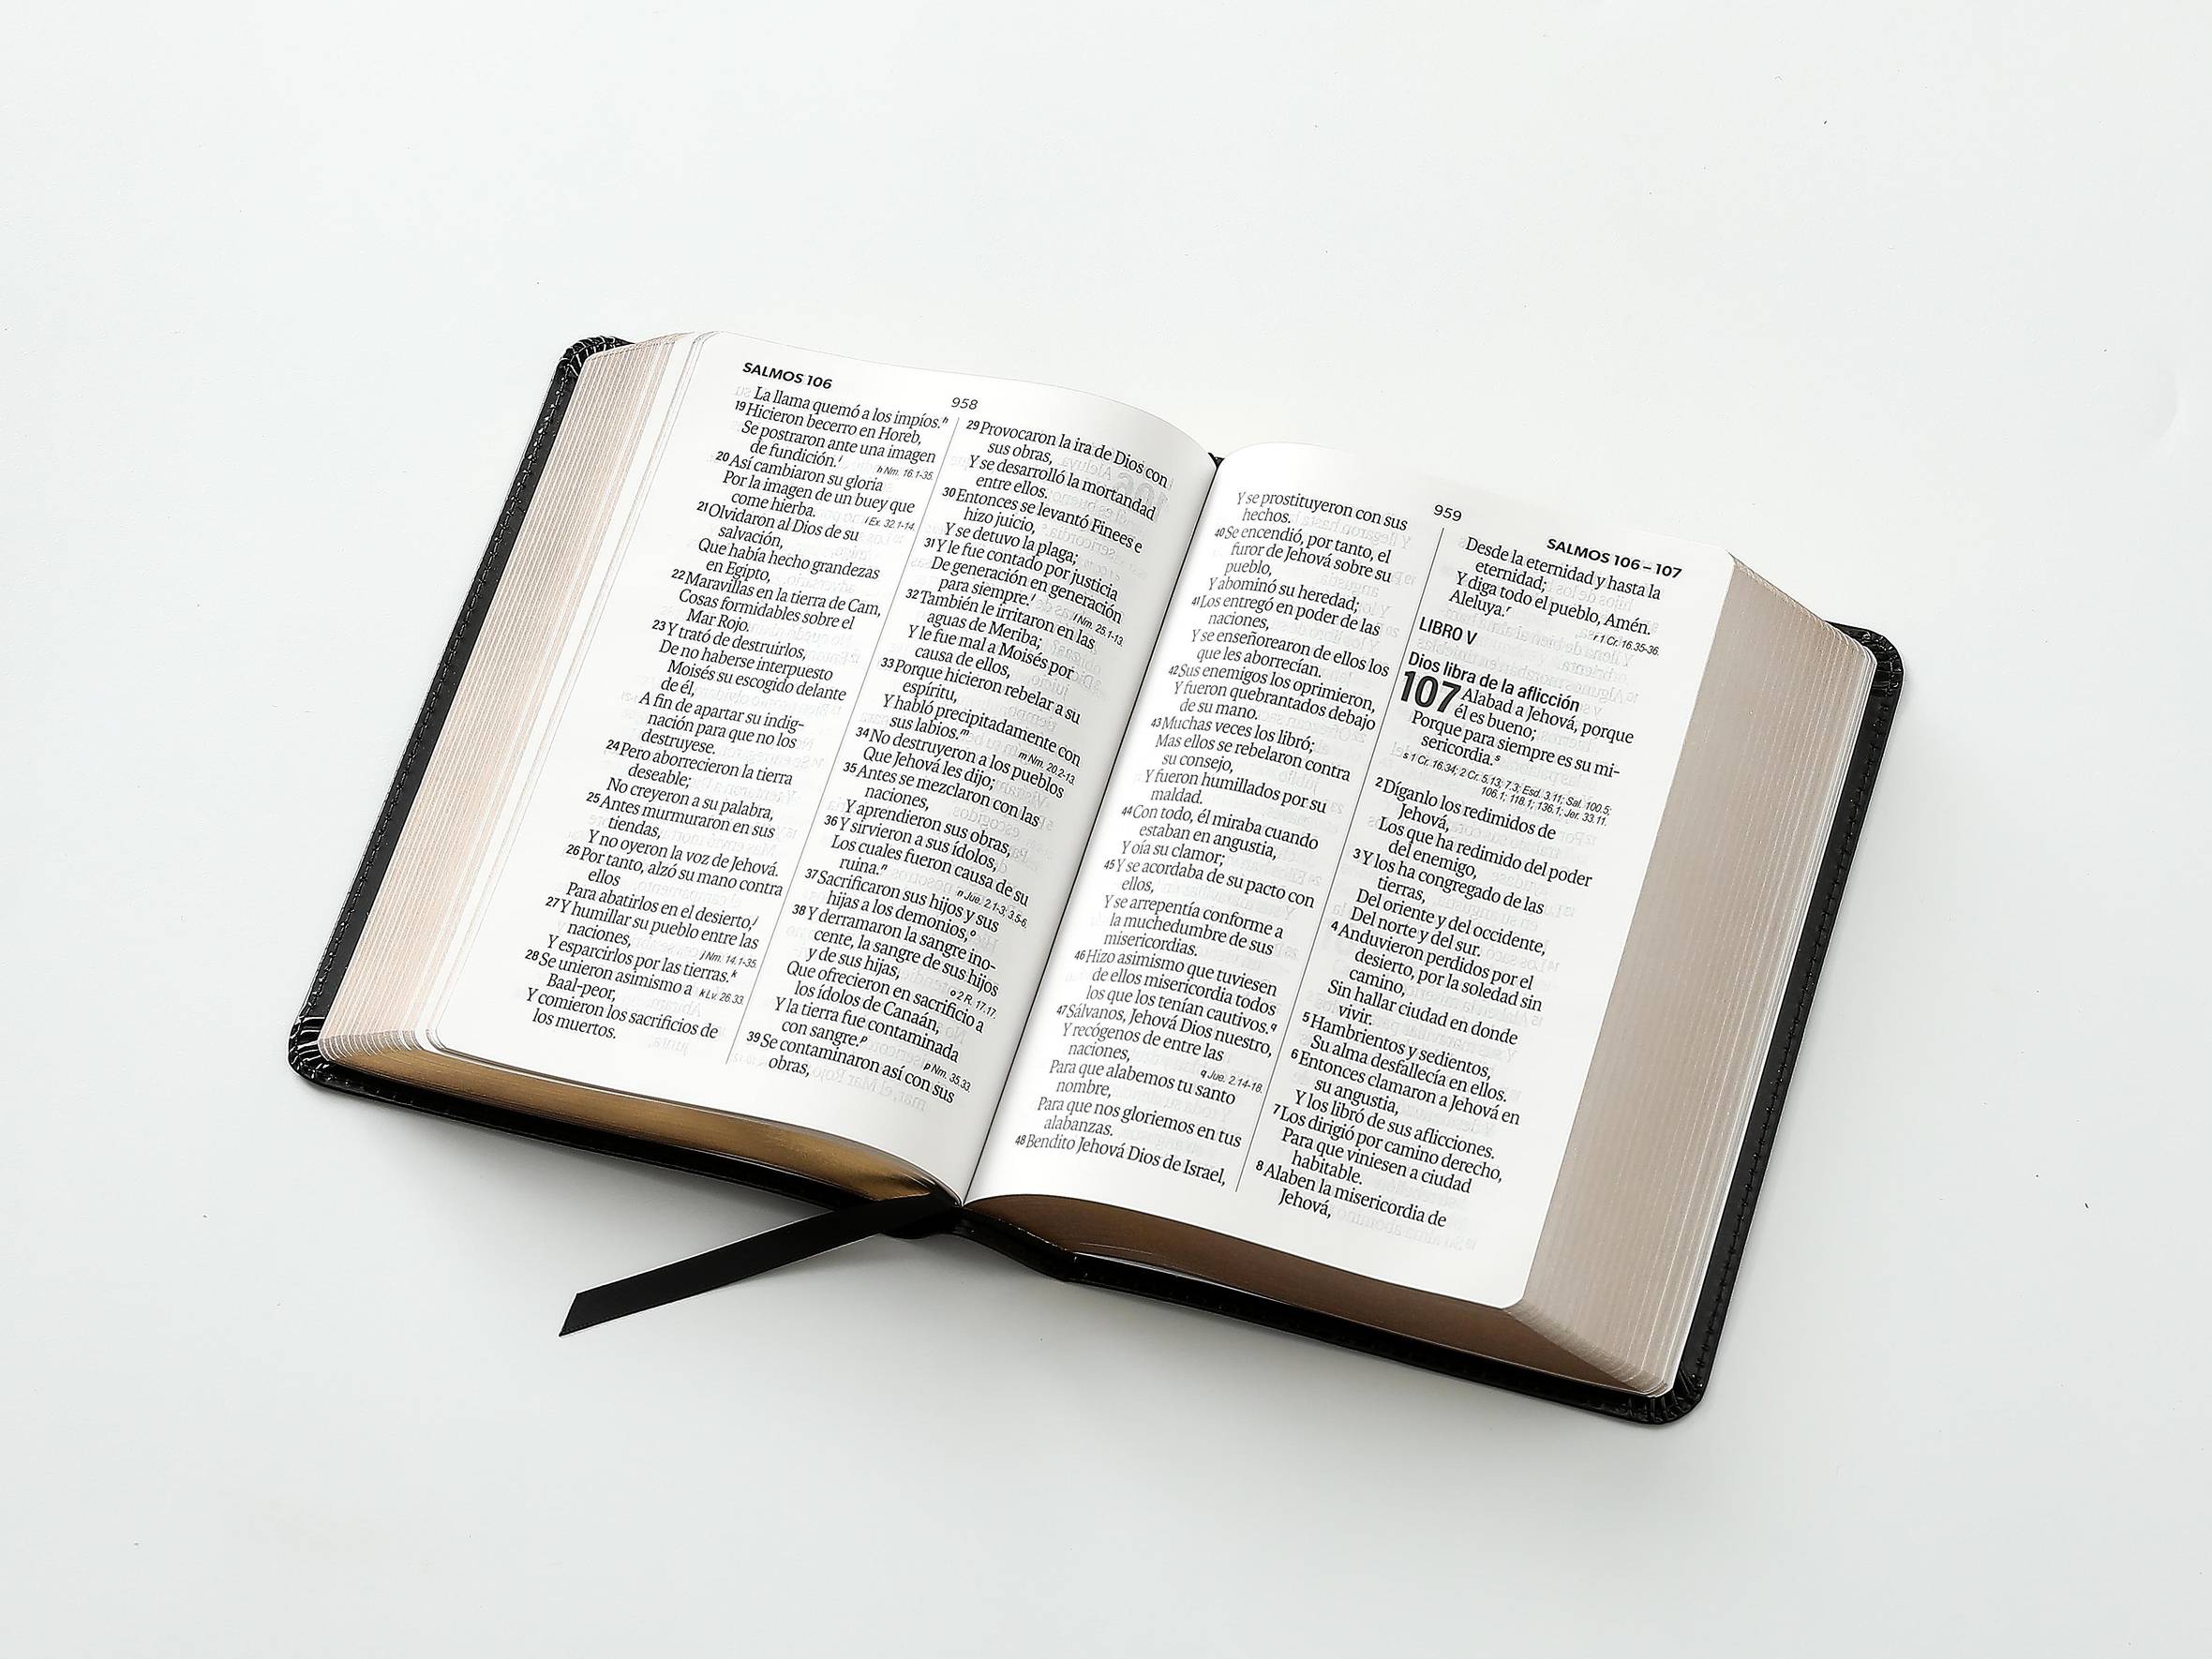 SALMOS 106
958
La llama quemó a los impíos.h
19 Hicieron becerro en Horeb,
Se postraron ante una imagen
de fundición.i
h Nm. 16.1-35.
20 Así cambiaron su gloria
Por la imagen de un buey que
come hierba.
i Ex. 32.1-14.
21 Olvidaron al Dios de su
salvación,
Que había hecho grandezas
en Egipto,
22 Maravillas en la tierra de Cam,
Cosas formidables sobre el
Mar Rojo.
23 Y trató de destruirlos,
De no haberse interpuesto
Moisés su escogido delante
de él,
A fin de apartar su indig-
nación para que no los
destruyese.
24 Pero aborrecieron la tierra
deseable;
No creyeron a su palabra,
25 Antes murmuraron en sus
tiendas,
Y no oyeron la voz de Jehová.
26 Por tanto, alzó su mano contra
ellos
Para abatirlos en el desierto,j
27 Y humillar su pueblo entre las
naciones,
j Nm. 14.1-35.
Y esparcirlos por las tierras.k
28 Se unieron asimismo a
k Lv. 26.33.
Baal-peor,
Y comieron los sacrificios de
los muertos.
29 Provocaron la ira de Dios con
sus obras,
Y se desarrolló la mortandad
entre ellos.
30 Entonces se levantó Finees e
hizo juicio,
Y se detuvo la plaga;
31 Y le fue contado por justicia
De generación en generación
para siempre.l
l Nm. 25.1-13.
32 También le irritaron en las
aguas de Meriba;
Y le fue mal a Moisés por
causa de ellos,
33 Porque hicieron rebelar a su
espíritu,
Y habló precipitadamente con
sus labios.m
m Nm. 20.2-13.
34 No destruyeron a los pueblos
Que Jehová les dijo;
35 Antes se mezclaron con las
naciones,
Y aprendieron sus obras,
36 Y sirvieron a sus ídolos,
Los cuales fueron causa de su
ruina.n
n Jue. 2.1-3; 3.5-6.
37 Sacrificaron sus hijos y sus
hijas a los demonios,o
38 Y derramaron la sangre ino-
cente, la sangre de sus hijos
y de sus hijas,
o 2 R. 17.17.
Que ofrecieron en sacrificio a
los ídolos de Canaán,
Y la tierra fue contaminada
con sangre.p
p Nm. 35.33.
39 Se contaminaron así con sus
obras,
959
SALMOS 106 – 107
Y se prostituyeron con sus
hechos.
40 Se encendió, por tanto, el
furor de Jehová sobre su
pueblo,
Y abominó su heredad;
41 Los entregó en poder de las
naciones,
Y se enseñorearon de ellos los
que les aborrecían.
42 Sus enemigos los oprimieron,
Y fueron quebrantados debajo
de su mano.
43 Muchas veces los libró;
Mas ellos se rebelaron contra
su consejo,
Y fueron humillados por su
maldad.
44 Con todo, él miraba cuando
estaban en angustia,
Y oía su clamor;
45 Y se acordaba de su pacto con
ellos,
Y se arrepentía conforme a
la muchedumbre de sus
misericordias.
46 Hizo asimismo que tuviesen
de ellos misericordia todos
los que los tenían cautivos.q
47 Sálvanos, Jehová Dios nuestro,
Y recógenos de entre las
naciones,
q Jue. 2.14-18.
Para que alabemos tu santo
nombre,
Para que nos gloriemos en tus
alabanzas.
48 Bendito Jehová Dios de Israel,
Desde la eternidad y hasta la
eternidad;
Y diga todo el pueblo, Amén.
Aleluya.r
r 1 Cr. 16.35-36.
LIBRO V
Dios libra de la aflicción
107 Alabad a Jehová, porque
él es bueno;
Porque para siempre es su mi-
sericordia.s
s 1 Cr. 16.34; 2 Cr. 5.13; 7.3; Esd. 3.11; Sal. 100.5;
106.1; 118.1; 136.1; Jer. 33.11.
2 Díganlo los redimidos de
Jehová,
Los que ha redimido del poder
del enemigo,
3 Y los ha congregado de las
tierras,
Del oriente y del occidente,
Del norte y del sur.
4 Anduvieron perdidos por el
desierto, por la soledad sin
camino,
Sin hallar ciudad en donde
vivir.
5 Hambrientos y sedientos,
Su alma desfallecía en ellos.
6 Entonces clamaron a Jehová en
su angustia,
Y los libró de sus aflicciones.
7 Los dirigió por camino derecho,
Para que viniesen a ciudad
habitable.
8 Alaben la misericordia de
Jehová,